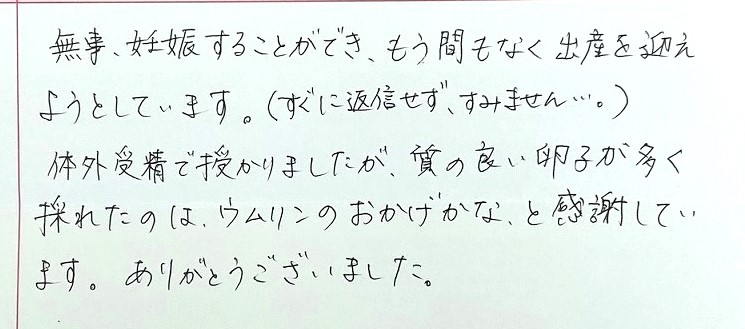 無事、妊娠することができ、もう間もなく出産を迎え
ようとしています。(すぐに返信せず、すみません…。)
体外受精で授かりましたが、質の良い卵子が多く
採れたのは、ウムリンのおかげかな、と感謝してい
ます。ありがとうございました。